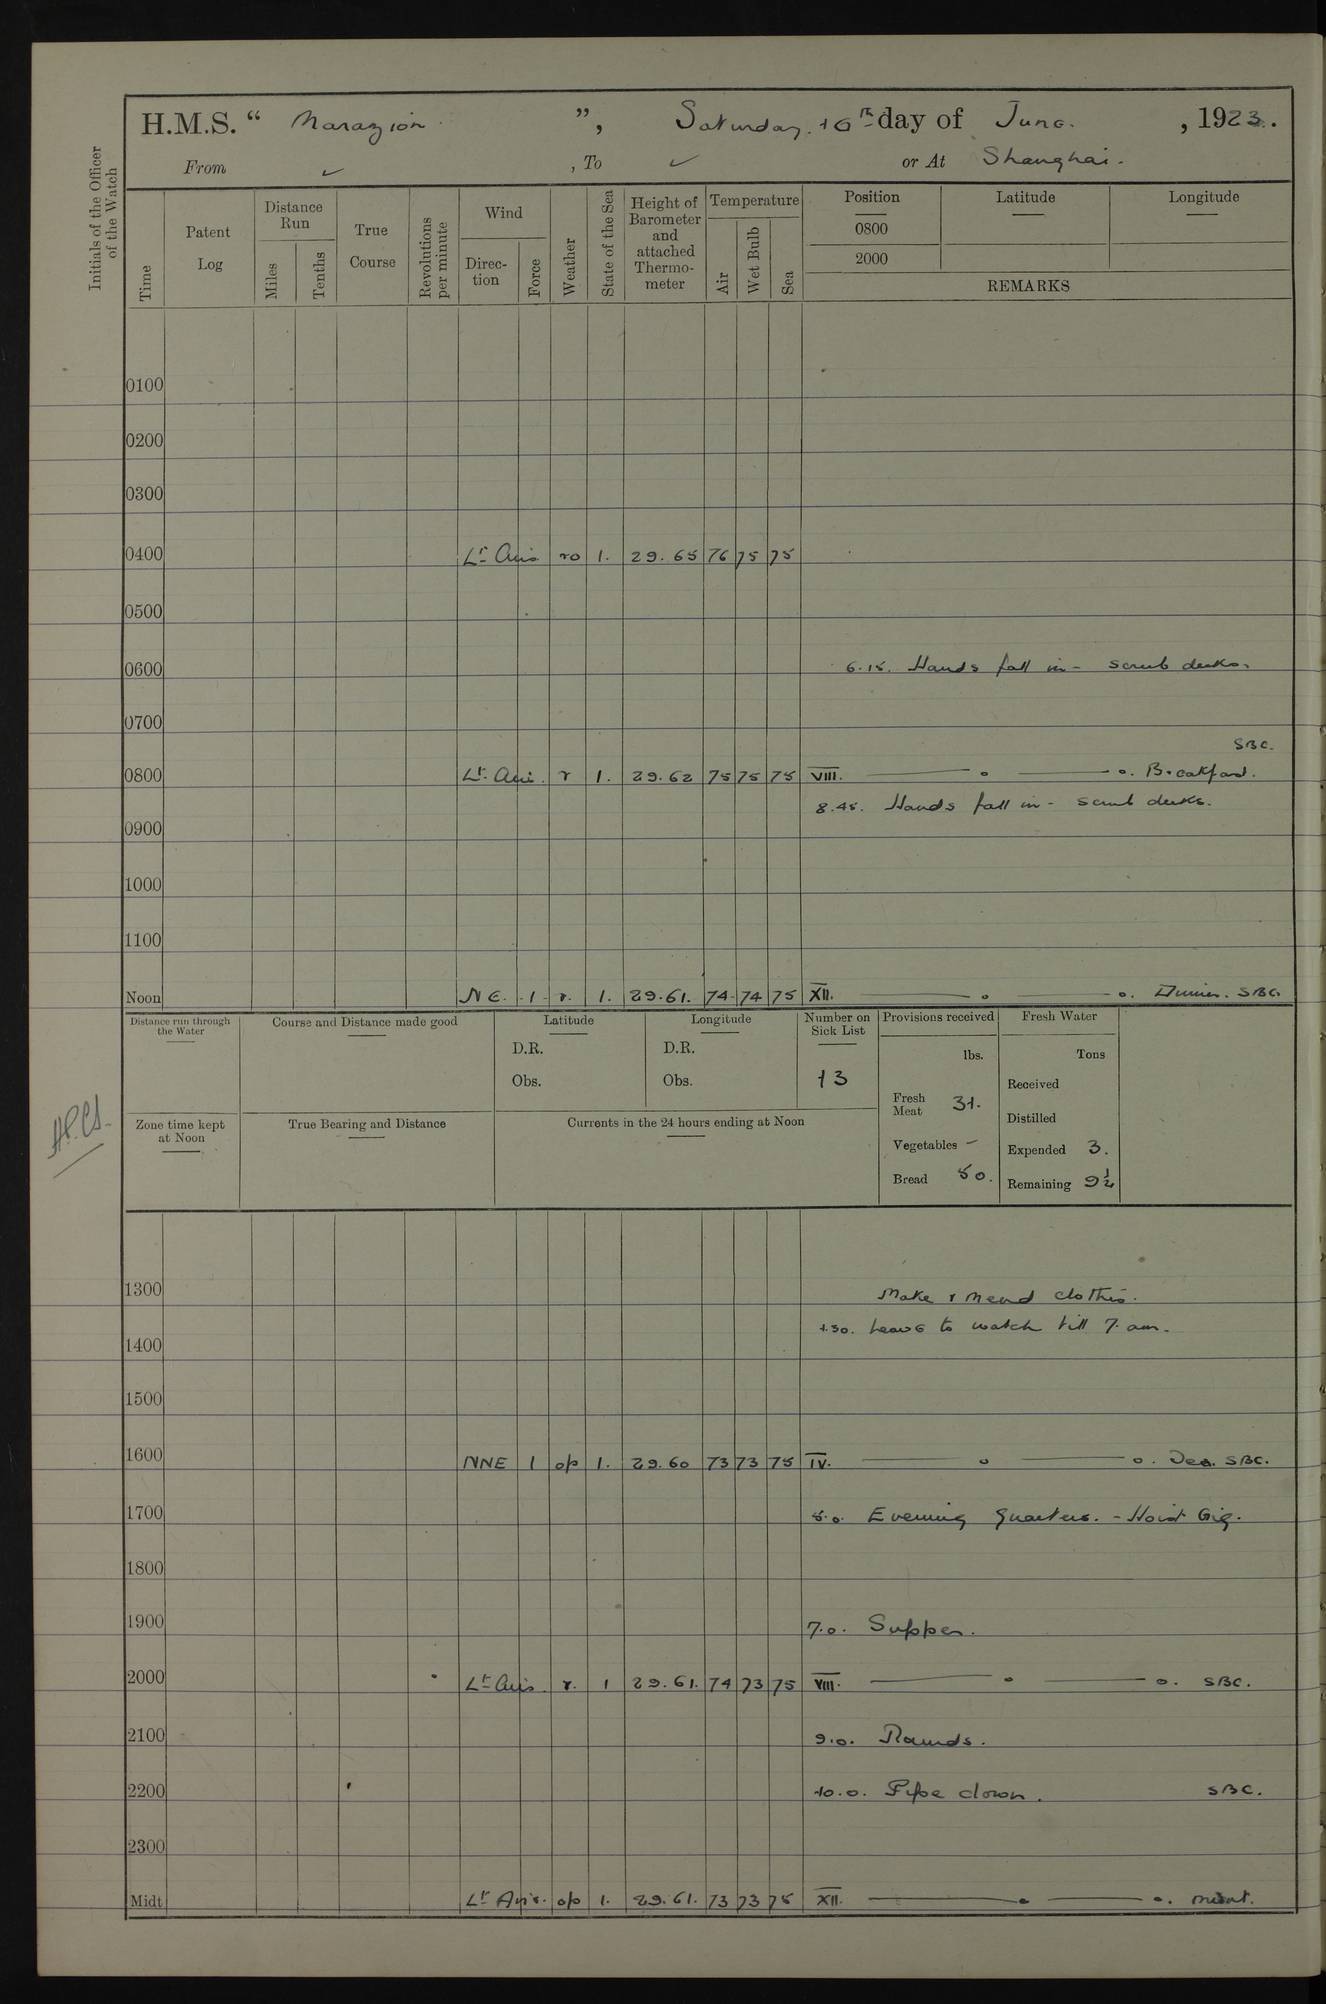 H.M.S. “ Marazion ”, Saturday. 16th day of June. , 1923.
From ✓ , To ✓ or At Shanghai.
Initials of the Officer of the Watch
Time
Patent Log
Distance Run
Miles
Tenths
True Course
Revolutions per minute
Wind
Direc-tion
Force
Weather
State of the Sea
Height of Barometer and attached Thermo-meter
Temperature
Air
Wet Bulb
Sea
Position
0800
2000
Latitude
Longitude
REMARKS
0100
0200
0300
0400 Lt Airs ro 1. 29.65 76 75 75
0500
0600 6.15. Hands fall in - scrub decks.
0700
SBC.
0800 Lt. Airs. r 1. 29.62 75 75 75 VIII. —— o —— o. Breakfast.
8.45. Hands fall in - scrub decks.
0900
1000
1100
Noon NE. 1 r. 1. 29.61. 74 74 75 XII. —— o —— o. Dinner. SBC.
Distance run through the Water
Course and Distance made good
Latitude
D.R.
Obs.
Longitude
D.R.
Obs.
Number on Sick List
13
Provisions received
lbs.
Fresh Meat 31.
Vegetables -
Bread 50.
Fresh Water
Tons
Received
Distilled
Expended 3.
Remaining 9½
Zone time kept at Noon
True Bearing and Distance
Currents in the 24 hours ending at Noon
1300 Make & Mend clothes.
1.30. Leave to watch till 7. am.
1400
1500
1600 NNE 1 op 1. 29.60 73 73 75 IV. —— o —— o. Tea. SBC.
1700 5.0. Evening Quarters. - Hoist Gig.
1800
1900 7.0. Supper.
2000 Lt Airs. r. 1 29.61. 74 73 75 VIII. —— o —— o. SBC.
2100 9.0. Rounds.
2200 10.0. Pipe down. SBC.
2300
Midt Lt Airs. op 1. 29.61. 73 73 75 XII. —— o —— o.